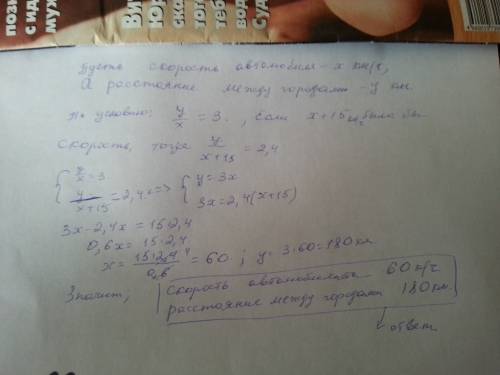 пози
с иде
муж
Вит
Юрс
ска
тог
теб
вод
Суд
Пусть скорость автомобиля - x км/ч,
А расстояние между городами - y км
по условию: y/x = 3. , если x+15 км/ч была бы
скорость, тогда y/(x+15) = 2,4
{ y/x = 3 { y = 3x
{ y/(x+15) = 2,4 <=> { 3x = 2,4(x+15)
3x - 2,4x = 15·2,4
0,6x = 15·2,4
x = 15·2,4/0,6 = 60 ; y = 3·60 = 180 км.
Значит, скорость автомобиля 60 км/ч
расстояние между городами 180 км.
ответ